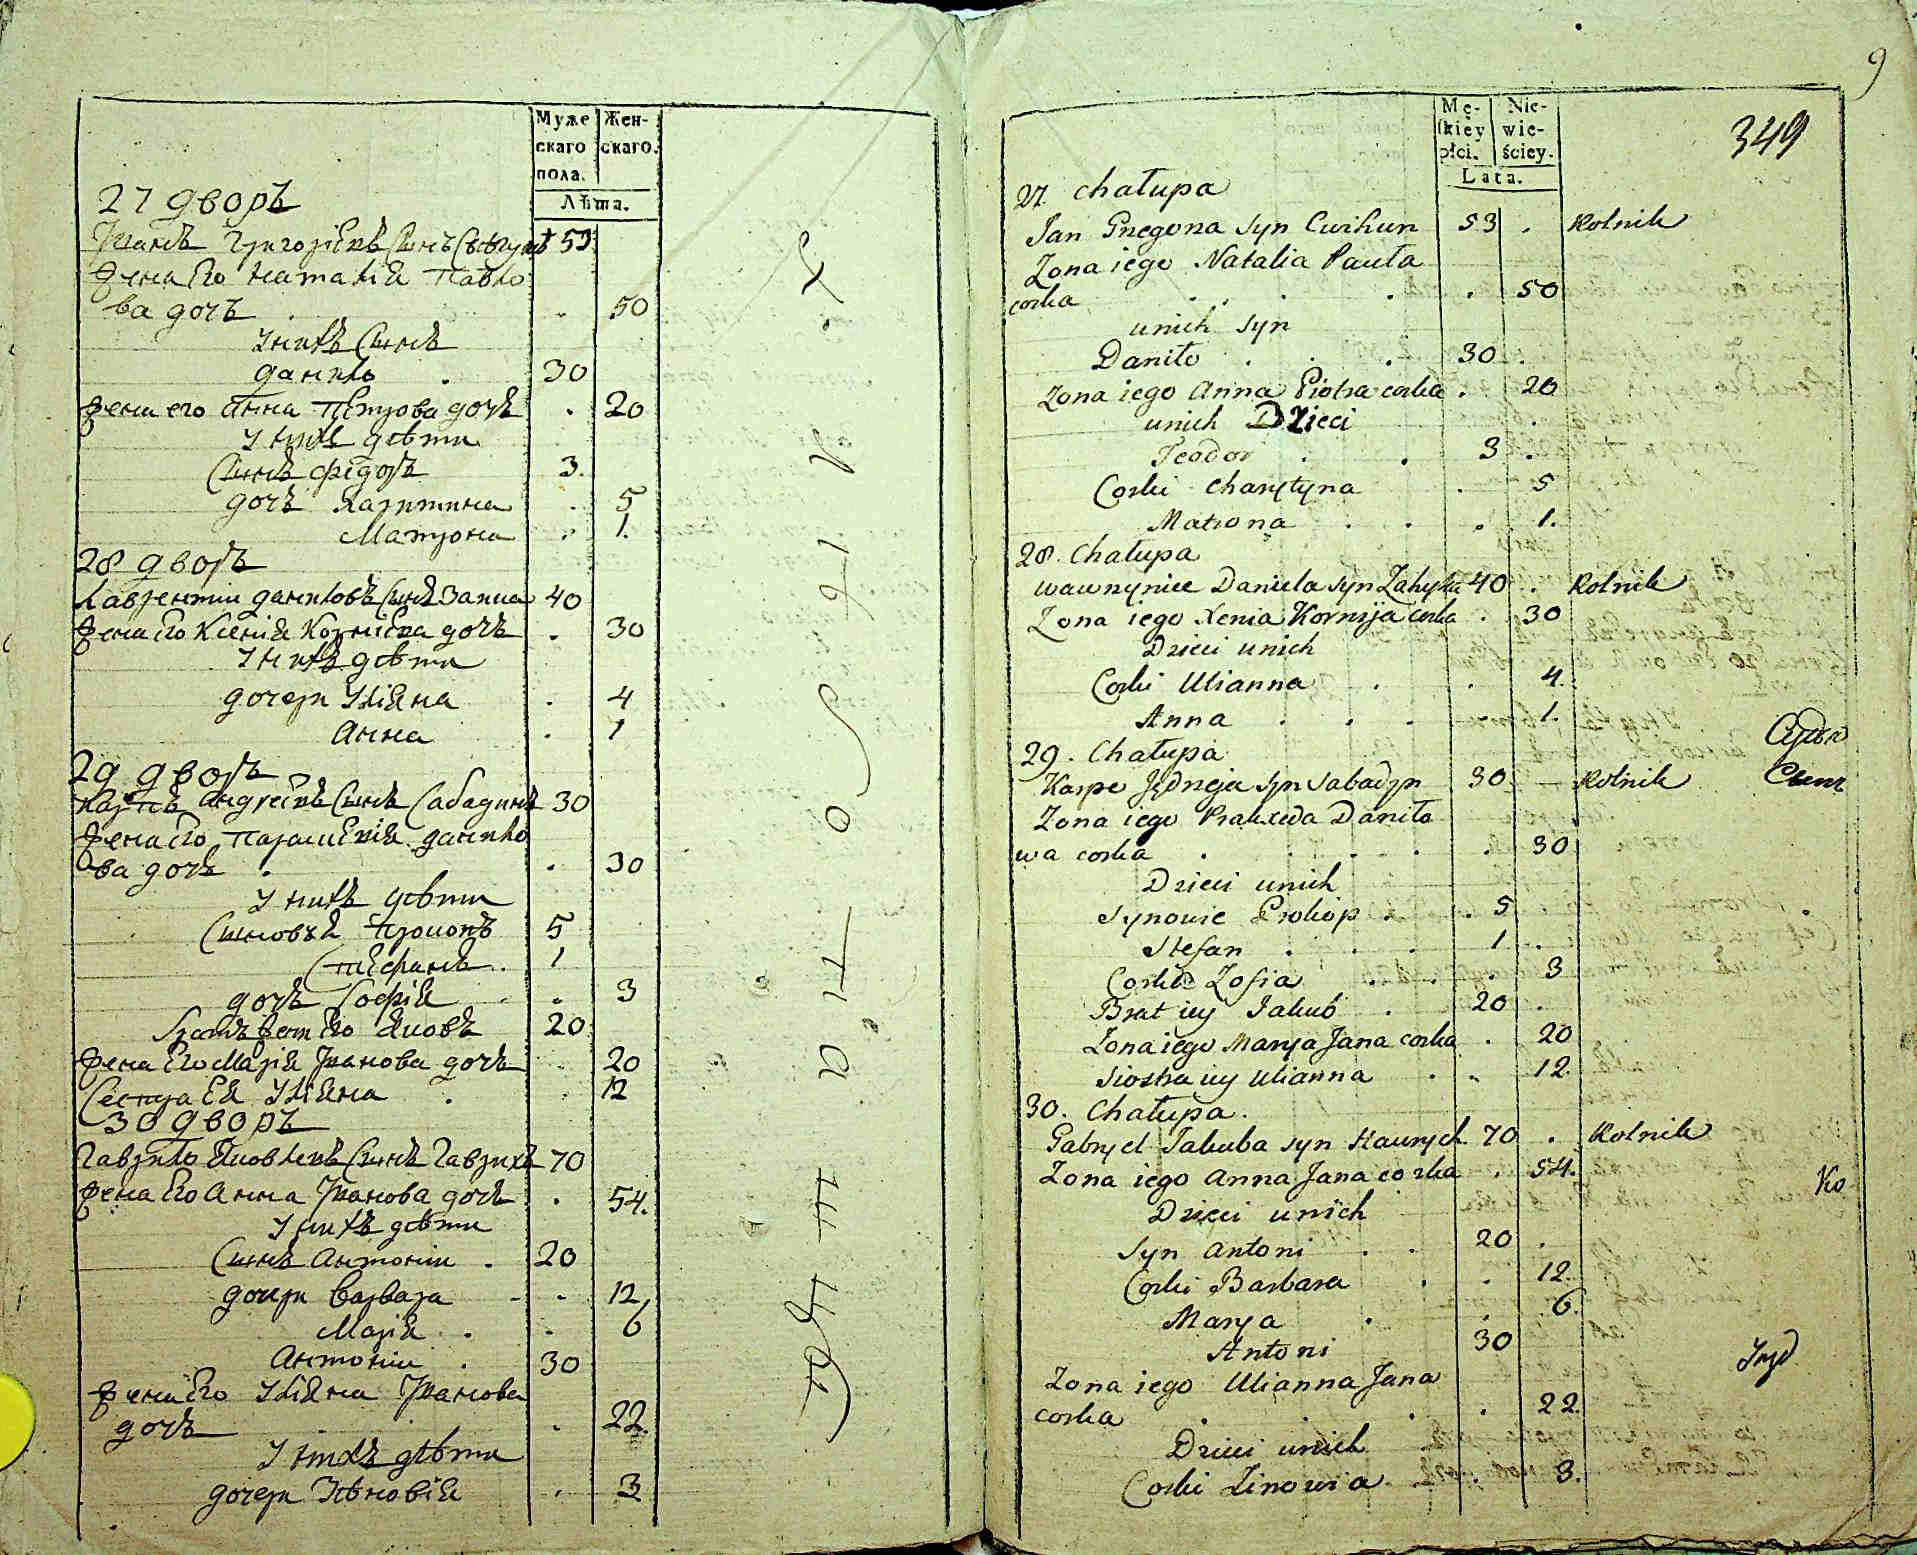 Муже
скаго
пола.
Жен-
скаго.
Лѣта.
27 дворъ
Іванъ Григоріевъ Сынъ 53
Жена Его Наталія Павло
ва дочь . . 50
У нихъ Сынъ
Данило . 30
Жена его Анна Петрова дочь . 20
У нихъ дѣти
Сынъ Федоръ 3
дочь Харитина . 5
Матрона . 1.
28 дворъ
Лаврентіи Даниловъ Сынъ 40
Жена Его Ксенія Корніева дочь . 30
У нихъ дѣти
дочери Уліяна . 4
Анна . 1
29 дворъ
Карпъ Андреевъ Сынъ Сабадинъ 30
Жена Его Параскевія Данило
ва дочь . . 30
У нихъ дѣти
Сыновья Прокопъ 5
Стефанъ . 1
дочь Софія . 3
Братъ Жены Его Яковъ 20
Жена Его Марія Іванова дочь . 20
Сестра Ея Уліяна . 12
30 дворъ
Гаврило Яковлевъ Сынъ Гаврихъ 70
Жена Его Анна Іванова дочь . 54.
У нихъ дѣти
Сынъ Антоніи . 20
дочери Варвара - - 12
Марія . . 6
Антоніи . 30
Жена Его Уліяна Іванова
дочь . 22.
У нихъ дѣти
дочери Зѣновія . 3
9
349
Mę-
ſkiey
płci.
Nie-
wie-
ściey.
Lata.
27. Chałupa
Jan Gregora syn Cwihun 53 . Rolnik
Zona iego Natalia Pawła
corka . . . . . 50
unich syn
Daniło . . . 30 .
Zona iego Anna Piotra corka . 20
unich Dzieci
Teodor . . 3 .
Corki Charytyna . 5
Matrona . . . 1.
28. Chałupa
Wawrzyniec Daniela syn 40 . Rolnik
Zona iego Xenia Kornija corka . 30
Dzieci unich
Corki Ulianna . . 4.
Anna . . . . 1.
29. Chałupa
Karpe Jędrzeja syn Sabadyn 30 — Rolnik
Zona iego Praxeda Daniło
wa corka . . . . . 30
Dzieci unich
Synowie Prokop . . 5 .
Stefan . . . 1 .
Corka Zofia . . . 3
Brat iey Jakub . 20 .
Zona iego Marya Jana corka . 20
Siostra iey Ulianna . . 12.
30. Chałupa.
Gabryel Jakuba syn Hawrych 70 . Rolnik
Zona iego Anna Jana corka . 54.
Ko
Dzieci unich
Syn Antoni . . 20 .
Corki Barbara . . 12.
Marya . . 6.
Antoni 30
Zona iego Ulianna Jana
corka . . . . 22.
Dzieci unich
Corki Zinowia . . 3.